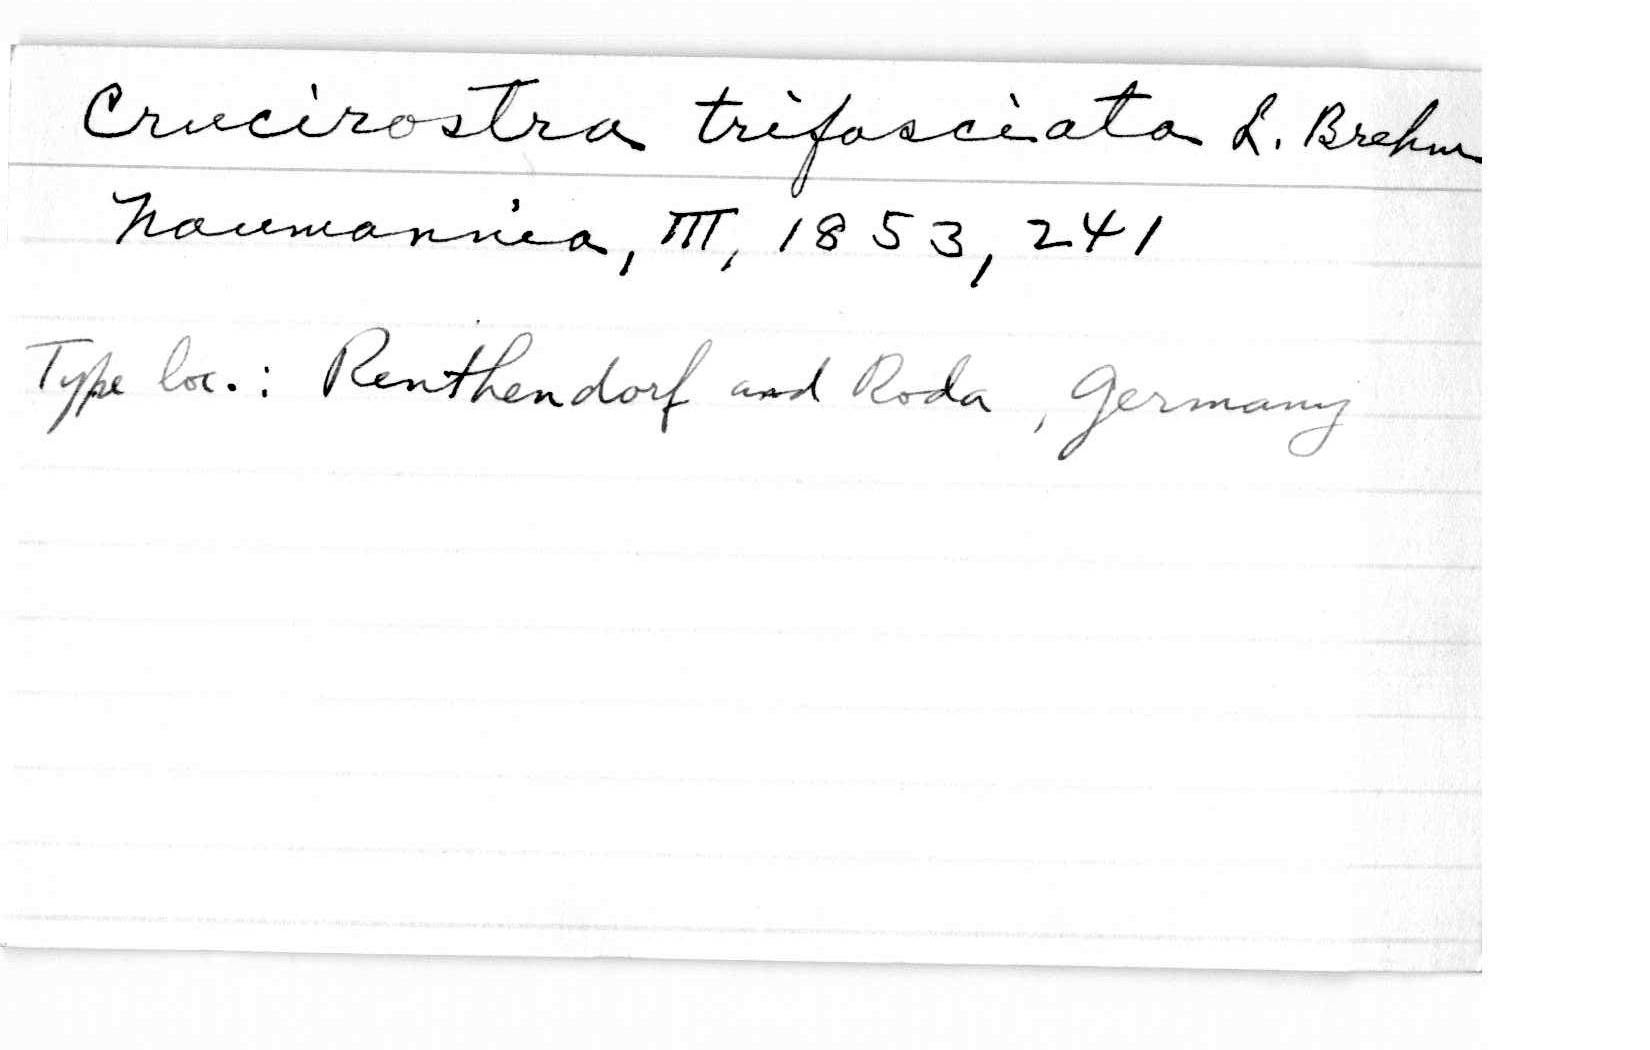 Crucirostra trifasciata L. Brehm
Naumannia, III, 1853, 241
Type loc.: Renthendorf and Roda, Germany